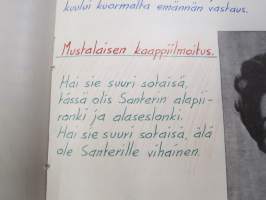 kuului kuormalta emännän vastaus.
Mustalaisen kaappiilmoitus.
Hai sie suuri sotaisä,
tässä olis Santerin alapii-
ronki ja alaseslonki.
Hai sie suuri sotaisä, älä
ole Santerille vihainen.